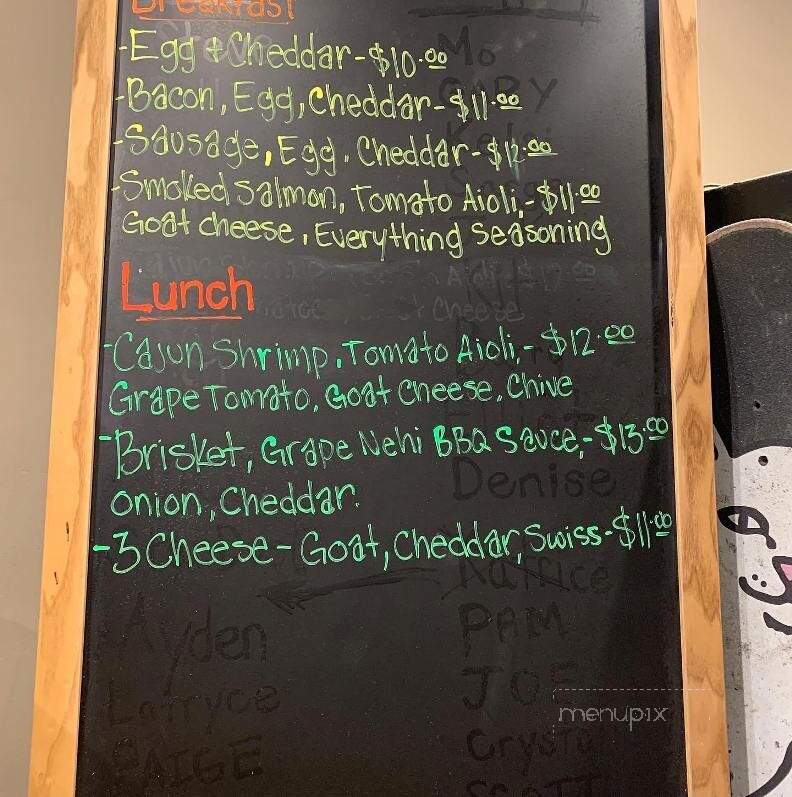 Breakfast
-Egg + Cheddar-$10.00
Mo
-Bacon, Egg, Cheddar-$11.00
GARY
-Sausage, Egg, Cheddar-$12.00
-Smoked Salmon, Tomato Aioli,-$11.00
Goat cheese, Everything Seasoning
Lunch
Cheese
-Cajun Shrimp, Tomato Aioli,-$12.00
Grape Tomato, Goat Cheese, Chive
-Brisket, Grape Nehi BBQ Sauce,-$13.00
Denise
onion, Cheddar.
-3 Cheese-Goat, Cheddar, Swiss-$11.00
PAM
Ayden
JOE
Latryce
menupix
PAIGE
SCOTT